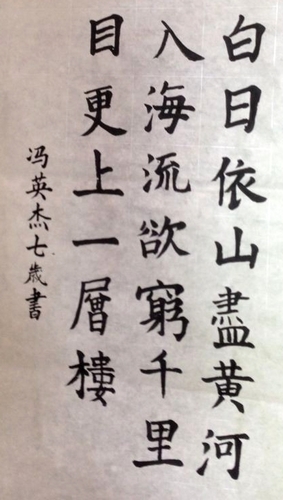 白日依山盡黃河
入海流欲窮千里
目更上一層樓
冯英杰七歲書